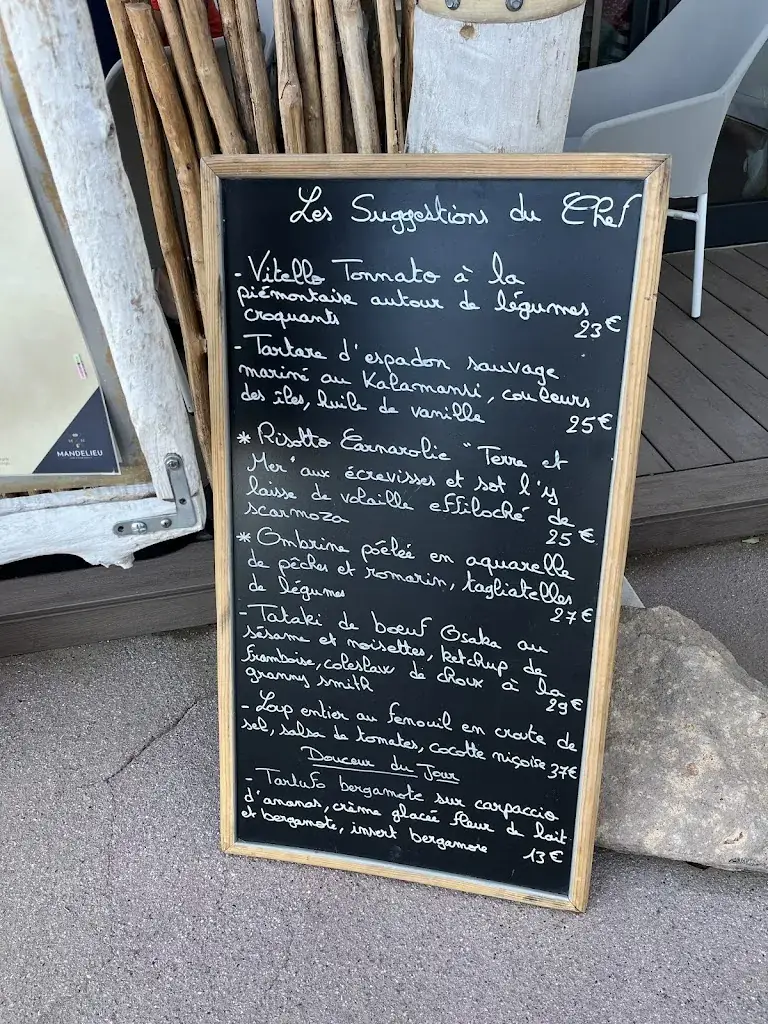 Les Suggestions du Chef
- Vitello Tonnato à la
piémontaise autour de légumes
croquants 23€
- Tartare d'espadon sauvage
mariné au Kalamansi, couleurs
des îles, huile de vanille 25€
* Risotto Carnarolie "Terre et
Mer" aux écrevisses et sot l'y
laisse de volaille effiloché de
scarmoza 25€
* Ombrine poêlée en aquarelle
de pêches et romarin, tagliatelles
de légumes 27€
- Tataki de boeuf Osaka au
sésame et noisettes, ketchup de
framboise, coleslaw de choux à la
granny smith 29€
- Loup entier au fenouil en croute de
sel, salsa de tomates, cocotte niçoise 37€
Douceur du Jour
- Tartufo bergamote sur carpaccio
d'ananas, crème glacée fleur de lait
et bergamote, insert bergamote 13€
MANDELIEU